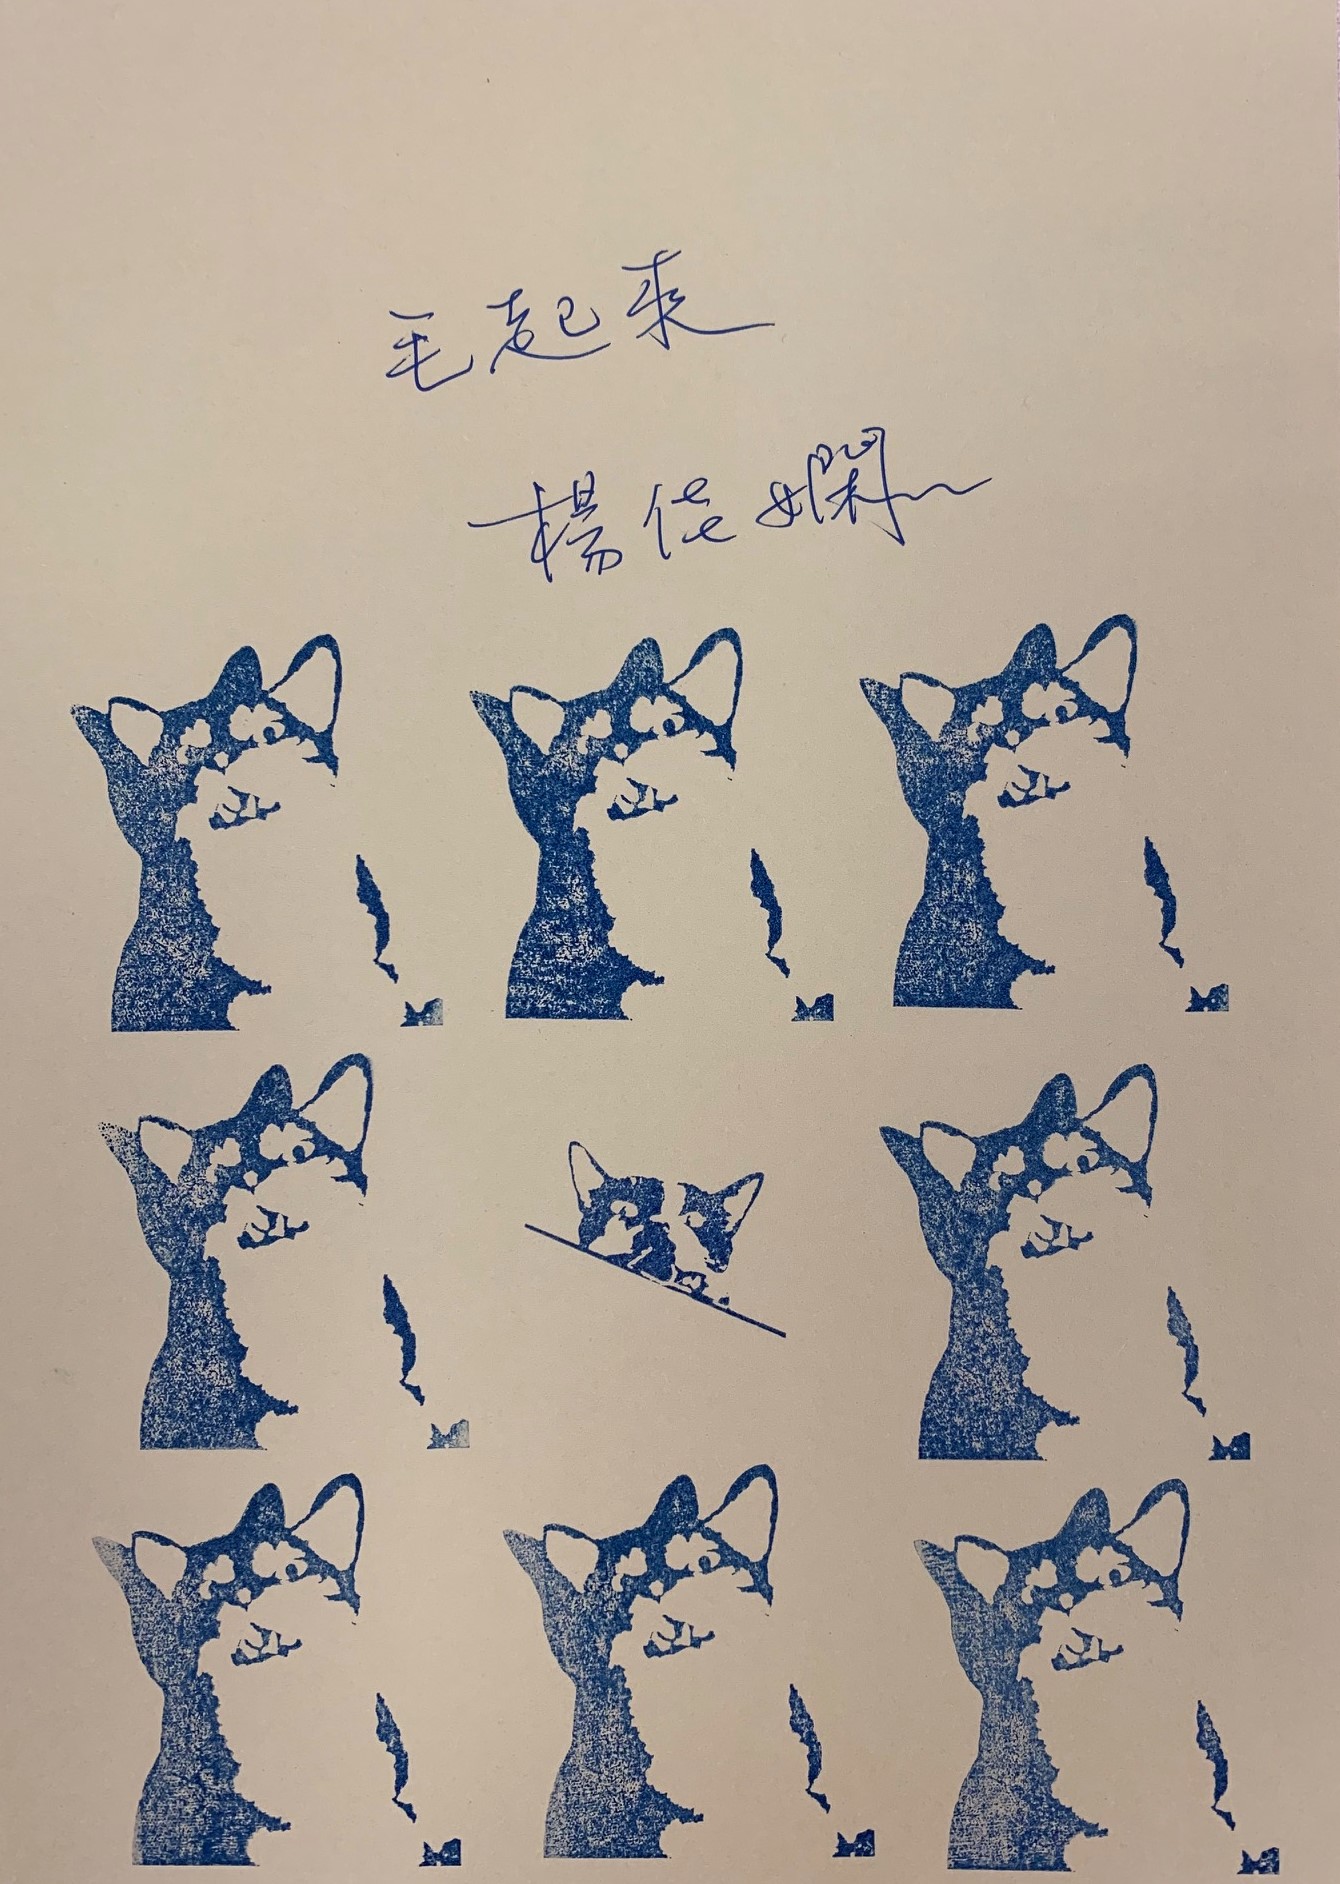 毛起來
楊佳嫻